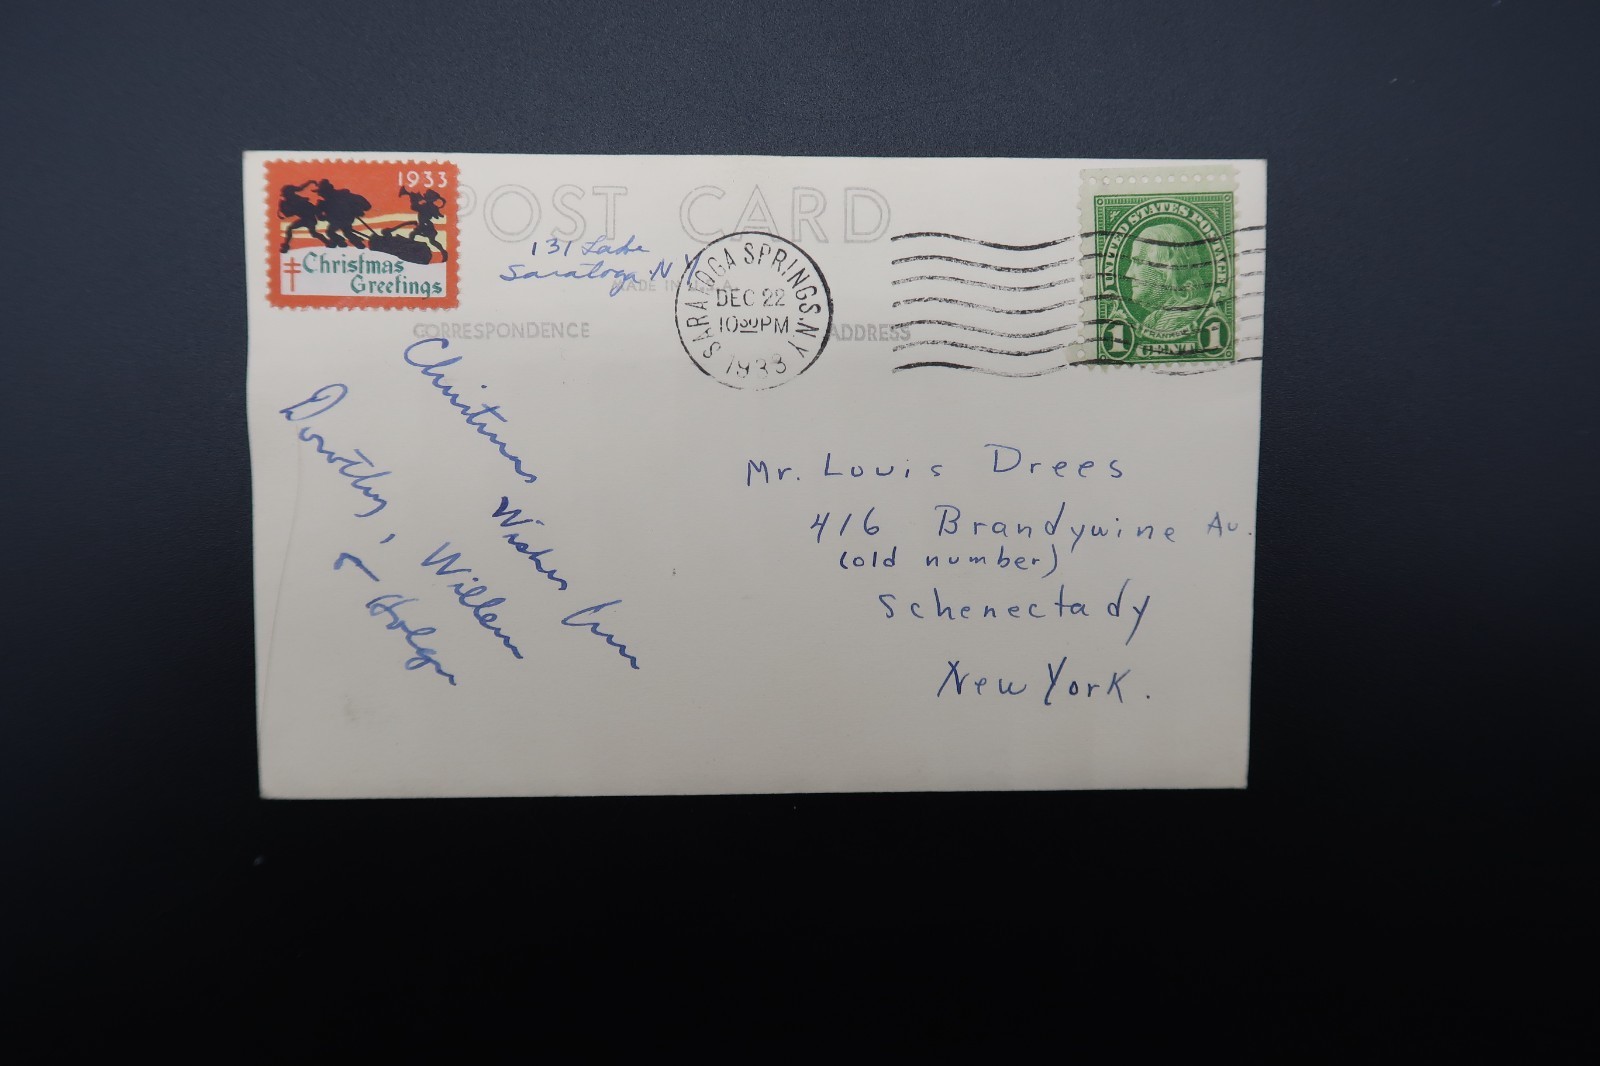 1933
Christmas
Greetings
POST CARD
131 Lake
Saratoga N Y
MADE IN U.S.A.
SARATOGA SPRINGS. N.Y.
DEC 22
10 30 PM
1933
UNITED STATES POSTAGE
FRANKLIN
1 CENT 1
CORRESPONDENCE
ADDRESS
Christmas Wishes from
Dorothy, Willem
& Holger
Mr. Louis Drees
416 Brandywine Av.
(old number)
Schenectady
New York.